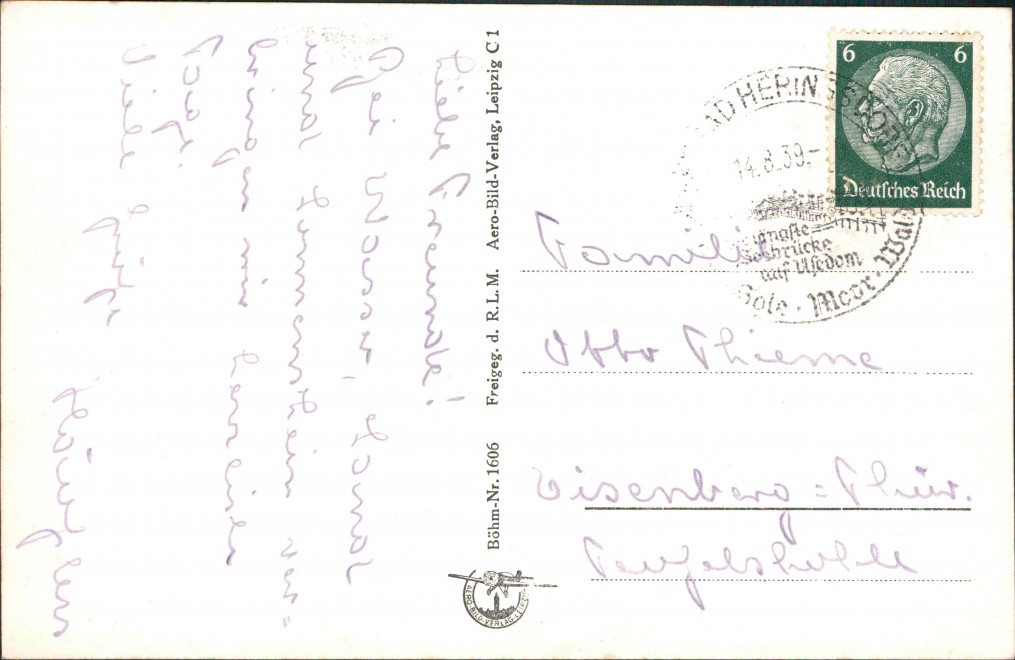 Liebe Freunde!
Bei Wasser, Sand
und Sonnenschein ver-
bringen wir herrliche
Tage.
Viele Grüße
6 6
Deutsches Reich
BAD HERINGSDORF
14.8.39.-
längste
Seebrücke
auf Usedom
Sole · Moor · Wald
Familie
Otto Thieme
Eisenberg = Thür.
Teufelshölle
Böhm-Nr. 1606 Freigeg. d. R.L.M. Aero-Bild-Verlag, Leipzig C 1
AERO-BILD-VERLAG-LEIPZIG